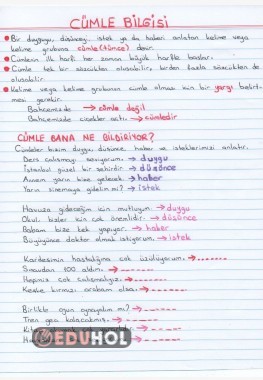 CÜMLE BİLGİSİ
Bir duyguyu, düşünceyi, istek ya da haberi anlatan kelime veya
kelime grubuna cümle (tümce) denir.
Cümlenin ilk harfi her zaman büyük harfle başlar.
Cümle tek bir sözcükten oluşabilir, birden fazla sözcükten de
oluşabilir.
Kelime veya kelime grubunun cümle olması için bir yargı belirt-
mesi gerekir.
Bahçemizde → cümle değil
Bahçemizde çiçekler açtı. → cümledir
CÜMLE BANA NE BİLDİRİYOR?
Cümleler bizim duygu, düşünce, haber ve isteklerimizi anlatır.
Ders çalışmayı seviyorum. → duygu
İstanbul güzel bir şehirdir. → düşünce
Annem yarın bize gelecek. → haber
Yarın sinemaya gidelim mi? → istek
Havuza gideceğim için mutluyum. → duygu
Okul, bizler için çok önemlidir. → düşünce
Babam bize kek yapıyor. → haber
Büyüyünce doktor olmak istiyorum. → istek
Kardeşimin hastalığına çok üzülüyorum. →
Sınavdan 100 aldım. →
Hepimiz çok çalışmalıyız. →
Keşke kırmızı arabam olsa. →
Birlikte oyun oynayalım mı? →
Tren geç kalacakmış. →
EDUHOL